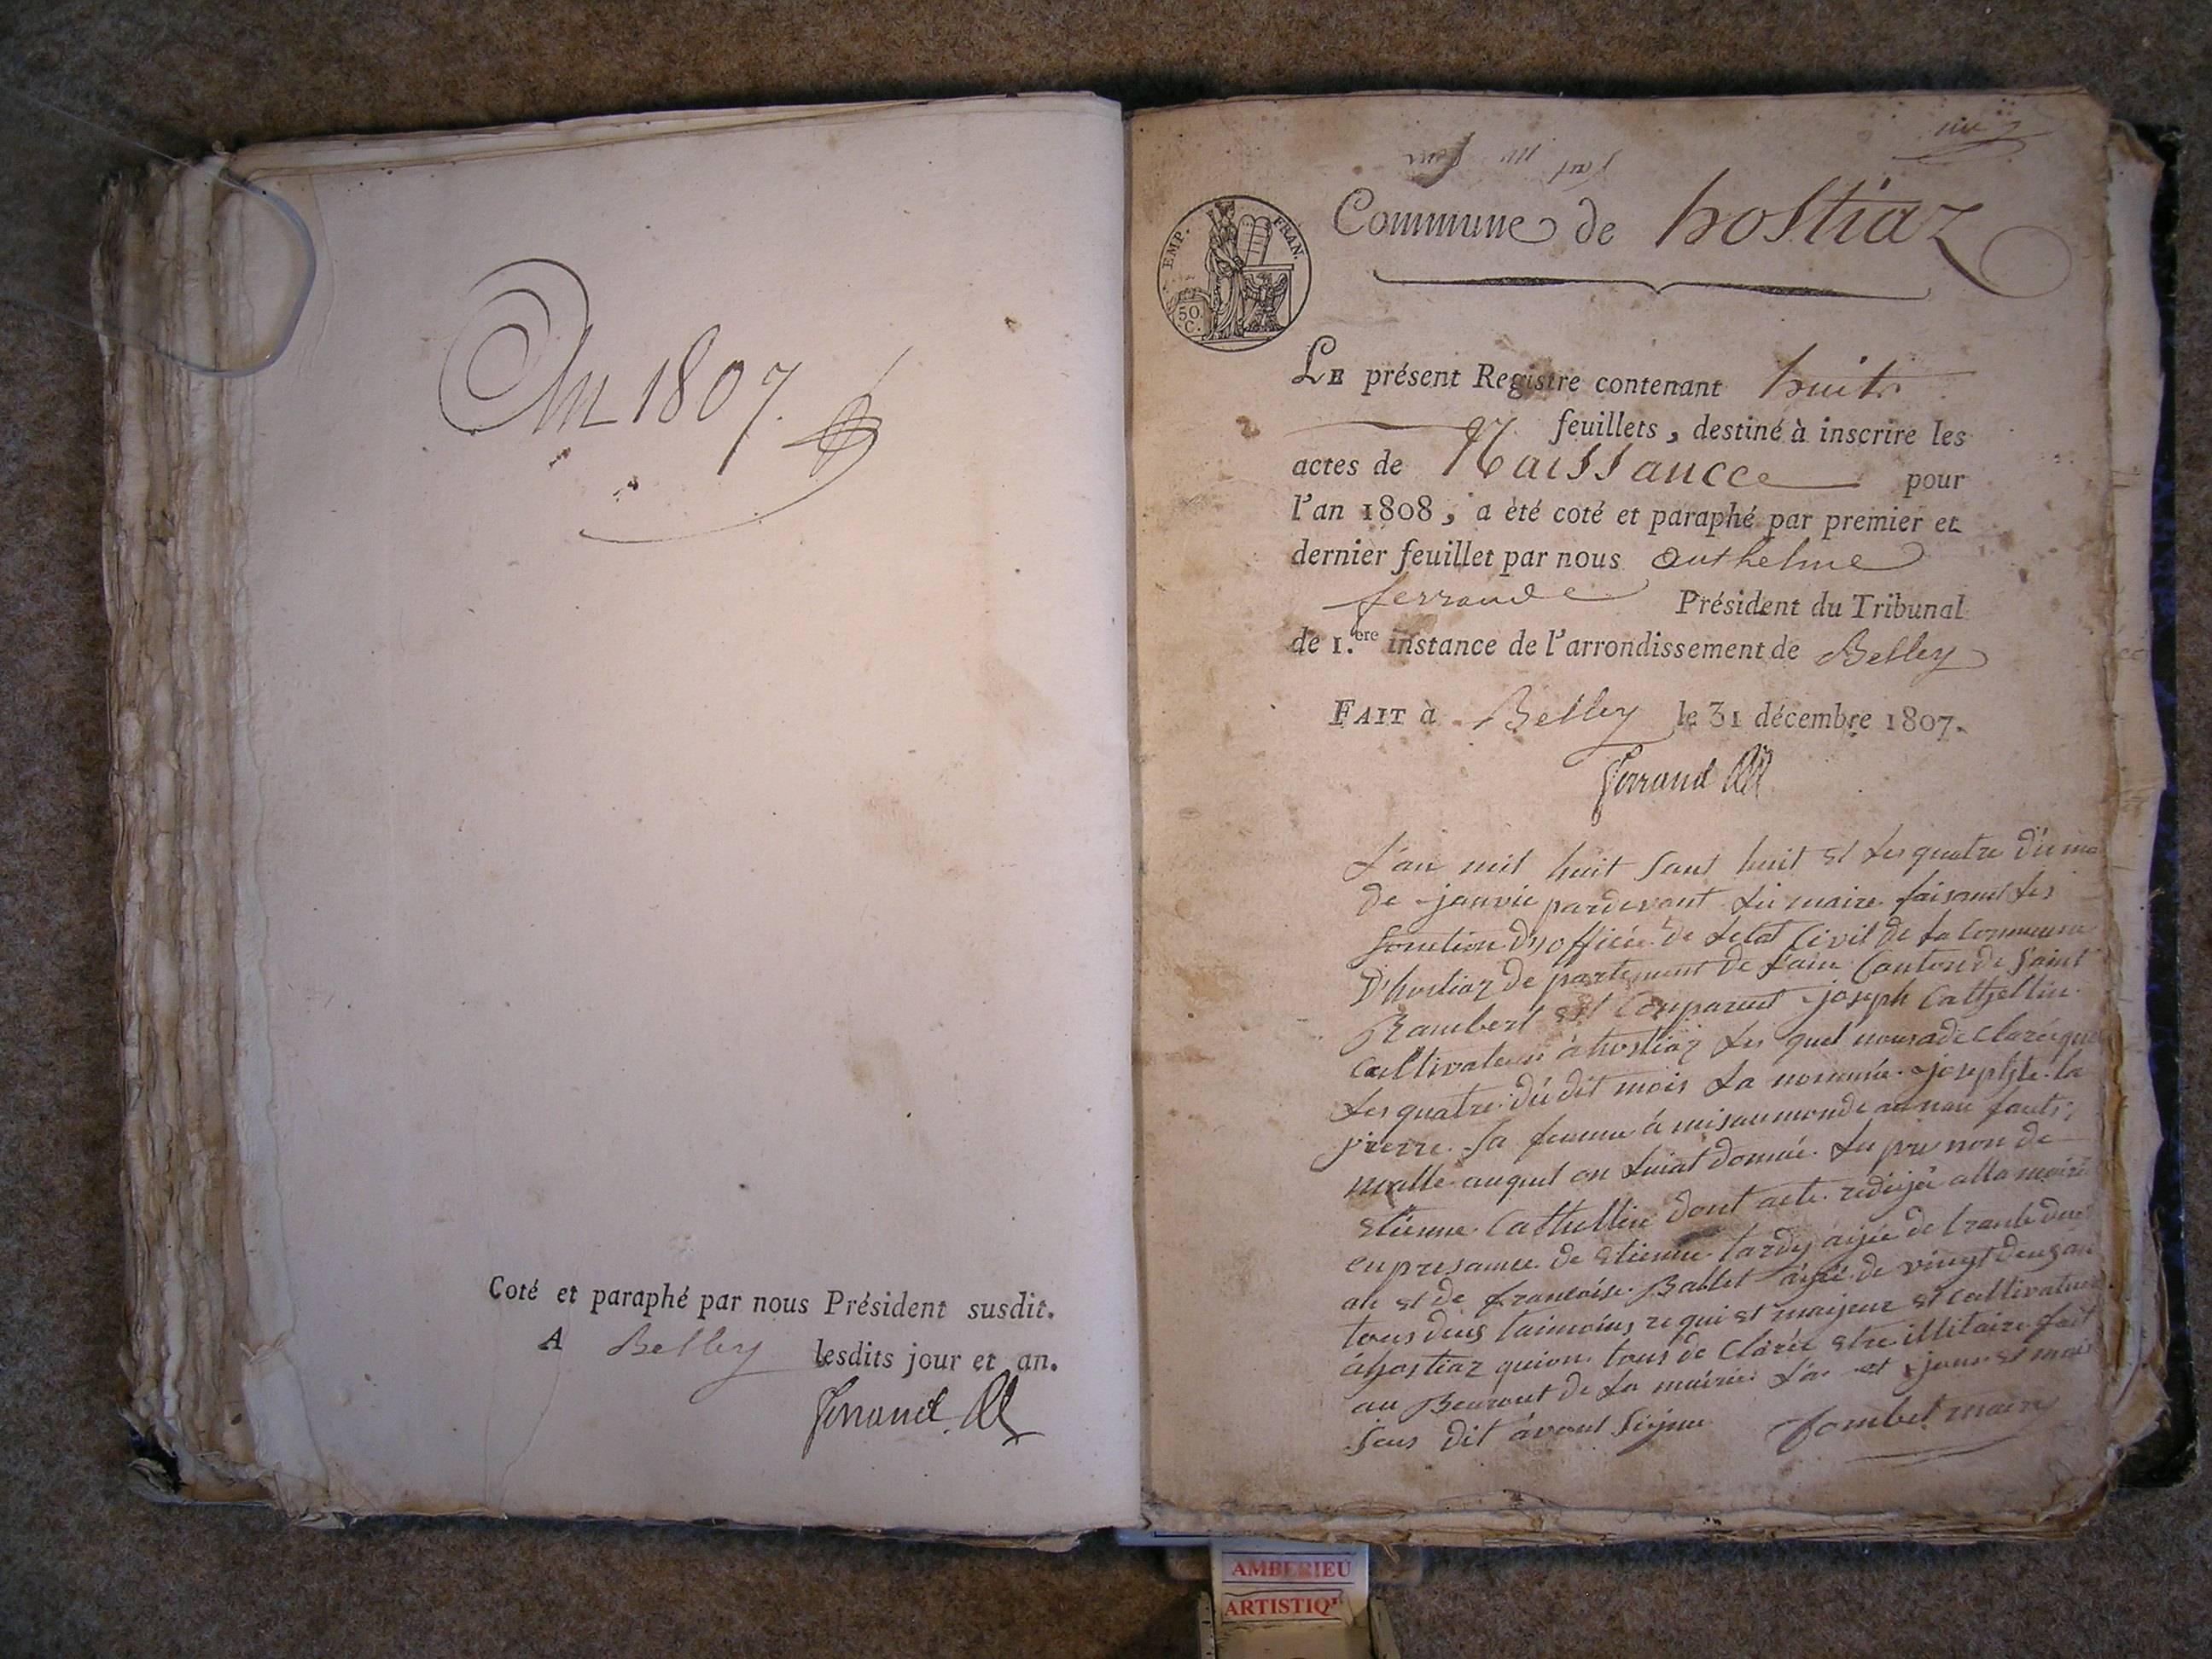 An 1807.
Coté et paraphé par nous Président susdit.
A Belley lesdits jour et an.
Ferrand
Commune de hostiaz
EMP. FRAN.
50.
C.
LE présent Registre contenant huit
feuillets, destiné à inscrire les
actes de Naissance pour
l'an 1808, a été coté et paraphé par premier et
dernier feuillet par nous anthelme
ferrand Président du Tribunal
de 1.ere instance de l'arrondissement de Belley
FAIT à Belley le 31 décembre 1807.
Ferrand
L'an mil huit sant huit et les quatre du
de janvie pardevant Lui maire faisant les
fonction de L'etat Civil de la Commune
D'hostiaz de partement de L'ain Canton de Saint
Rambert est Conparut joseph Cathellin
Cultivateur a hostiaz Les quel nous a de Claré que
Les quatre du dit mois La nommée josephte la
pierre Sa femme a mis au monde un fants
malle auquel on Luiat donné Lu pre non de
etienne Cathellin dont acte redijée alla mairie
en presance de etienne tardy aijée de trante
an et de francoise Ballet aijée de vingt deus an
tous deus taimoins re qui et maijeur et cultivateur
a hostiaz qui on tous de Clarée etre illitaire fait
au Beuraut de La mairie L'an et jour et mois
sus dit avont Sijnee Jombet maire
AMBERIEU
ARTISTIQ